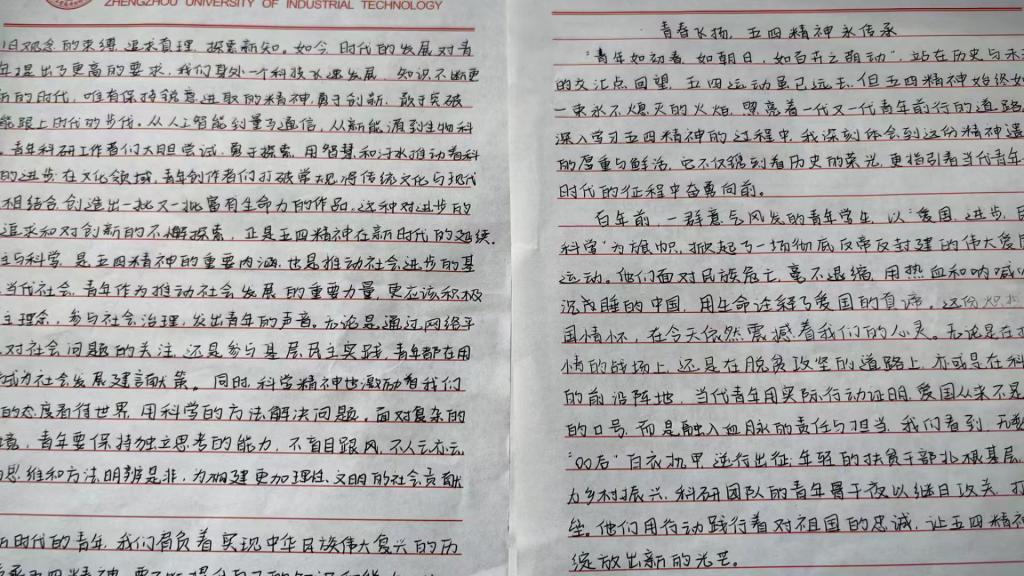 青春飞扬，五四精神永传承
“青年如初春，如朝日，如百卉之萌动”，站在历史与未
的交汇点回望，五四运动虽已远去，但五四精神始终如
一束永不熄灭的火焰，照亮着一代又一代青年前行的道路
深入学习五四精神的过程中，我深刻体会到这份精神遗
的厚重与鲜活，它不仅镌刻着历史的荣光，更指引着当代青年
时代的征程中奋勇向前。
百年前，一群意气风发的青年学生，以“爱国、进步、民
科学”为旗帜，掀起了一场彻底反帝反封建的伟大爱国
运动。他们面对民族危亡，毫不退缩，用热血和呐喊
沉睡的中国，用生命诠释了爱国的真谛。这份
国情怀，在今天依然震撼着我们的心灵。无论是在
情的战场上，还是在脱贫攻坚的道路上，亦或是在科
的前沿阵地，当代青年用实际行动证明，爱国从来不是
的口号，而是融入血脉的责任与担当。我们看到，无数
“00后”白衣执甲，逆行出征；年轻的扶贫干部扎根基层，
力乡村振兴；科研团队的青年骨干夜以继日攻关，
坚。他们用行动践行着对祖国的忠诚，让五四精神
绽放出新的光芒。
ZHENGZHOU UNIVERSITY OF INDUSTRIAL TECHNOLOGY
旧观念的束缚，追求真理，探索新知。如今，时代的发展对青
年提出了更高的要求，我们身处一个科技飞速发展、知识不断更
新的时代，唯有保持锐意进取的精神，勇于创新，敢于突破
能跟上时代的步伐。从人工智能到量子通信，从新能源到生物科
青年科研工作者们大胆尝试，勇于探索，用智慧和汗水推动着科
的进步；在文化领域，青年创作者们打破常规，将传统文化与现代
相结合，创造出一批又一批富有生命力的作品，这种对进步的
追求和对创新的不懈探索，正是五四精神在新时代的延续。
主与科学，是五四精神的重要内涵，也是推动社会进步的基
当代社会，青年作为推动社会发展的重要力量，更应该积极
主理念，参与社会治理，发出青年的声音。无论是通过网络平
对社会问题的关注，还是参与基层民主实践，青年都在用
式为社会发展建言献策。同时，科学精神也激励着我们
的态度看待世界，用科学的方法解决问题。面对复杂的
境，青年要保持独立思考的能力，不盲目跟风，不人云亦云，
思维和方法明辨是非，为构建更加理性、文明的社会贡献
新时代的青年，我们肩负着实现中华民族伟大复兴的历